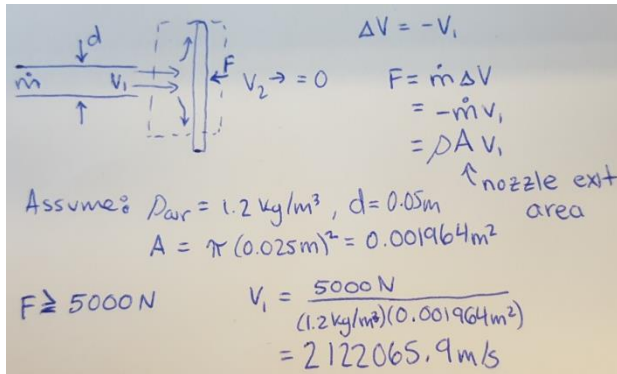 d
ṁ
V₁
F
V₂→ = 0
ΔV = -V₁
F = ṁ ΔV
= -ṁ V₁
= ρ A V₁
nozzle exit
area
Assume: ρair = 1.2 kg/m³, d = 0.05m
A = π (0.025m)² = 0.001964m²
F ≥ 5000 N
V₁ = 5000 N
(1.2 kg/m³)(0.001964m²)
= 2122065.9 m/s